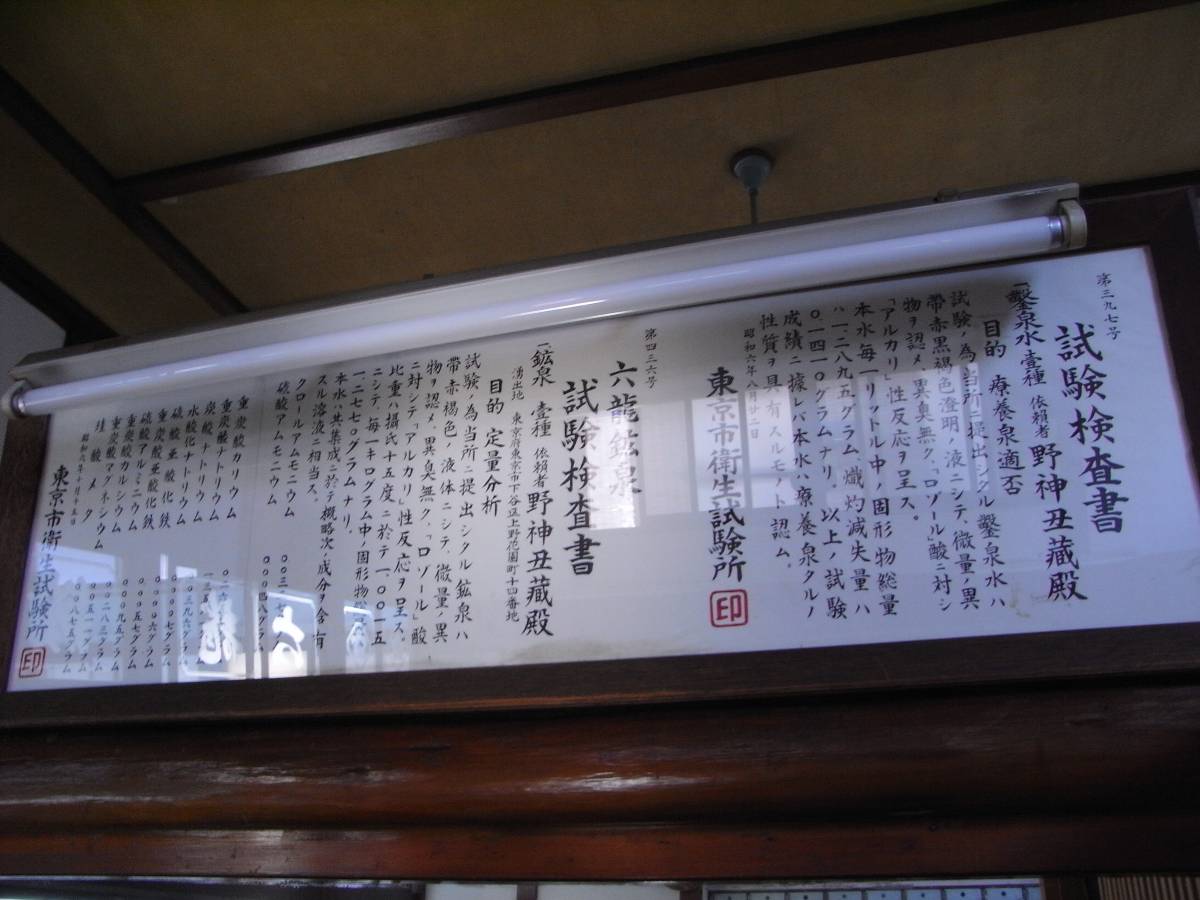 第三九七号
試験検査書
一鑿泉水 壹種 依頼者 野神丑藏殿
目的 療養泉適否
試験ノ為当所ニ提出シタル鑿泉水ハ
帯赤黒褐色澄明ノ液ニシテ、微量ノ異
物ヲ認メ、異臭無ク、「ロゾール」酸ニ対シ
「アルカリ」性反応ヲ呈ス。
本水毎一リットル中ノ固形物総量
ハ一.二八九五グラム、熾灼減失量ハ
〇.一四一〇グラムナリ。以上ノ試験
成績ニ據レバ本水ハ療養泉タルノ
性質ヲ具有スルモノト認ム。
昭和六年八月廿二日
東京市衛生試験所 印
第四三六号
六龍鉱泉
試験検査書
一鉱泉 壹種 依頼者 野神丑藏殿
湧出地 東京府東京市下谷区上野花園町十四番地
目的 定量分析
試験ノ為当所ニ提出シタル鉱泉ハ
帯赤褐色ノ液体ニシテ、微量ノ異
物ヲ認メ、異臭無ク、「ロゾール」酸
ニ対シテ「アルカリ」性反応ヲ呈ス。
比重ハ攝氏十五度ニ於テ一.〇〇一五
ニシテ、毎一キログラム中ノ固形物
一.二七七〇グラムナリ。
本水ハ其集成ニ於テ概略次ノ成分ヲ含有
スル溶液ニ相当ス。
クロールアムモニウム
硫酸アムモニウム
重炭酸カリウム
重炭酸ナトリウム
炭酸ナトリウム
水酸化ナトリウム
硫酸亜酸化鉄
重炭酸亜酸化鉄 〇.〇〇〇七グラム
硫酸アルミニウム 〇.〇〇〇六グラム
重炭酸カルシウム 〇.〇〇五七グラム
重炭酸マグネシウム
珪酸メタ
昭和六年十月十五日
東京市衛生試験所 印